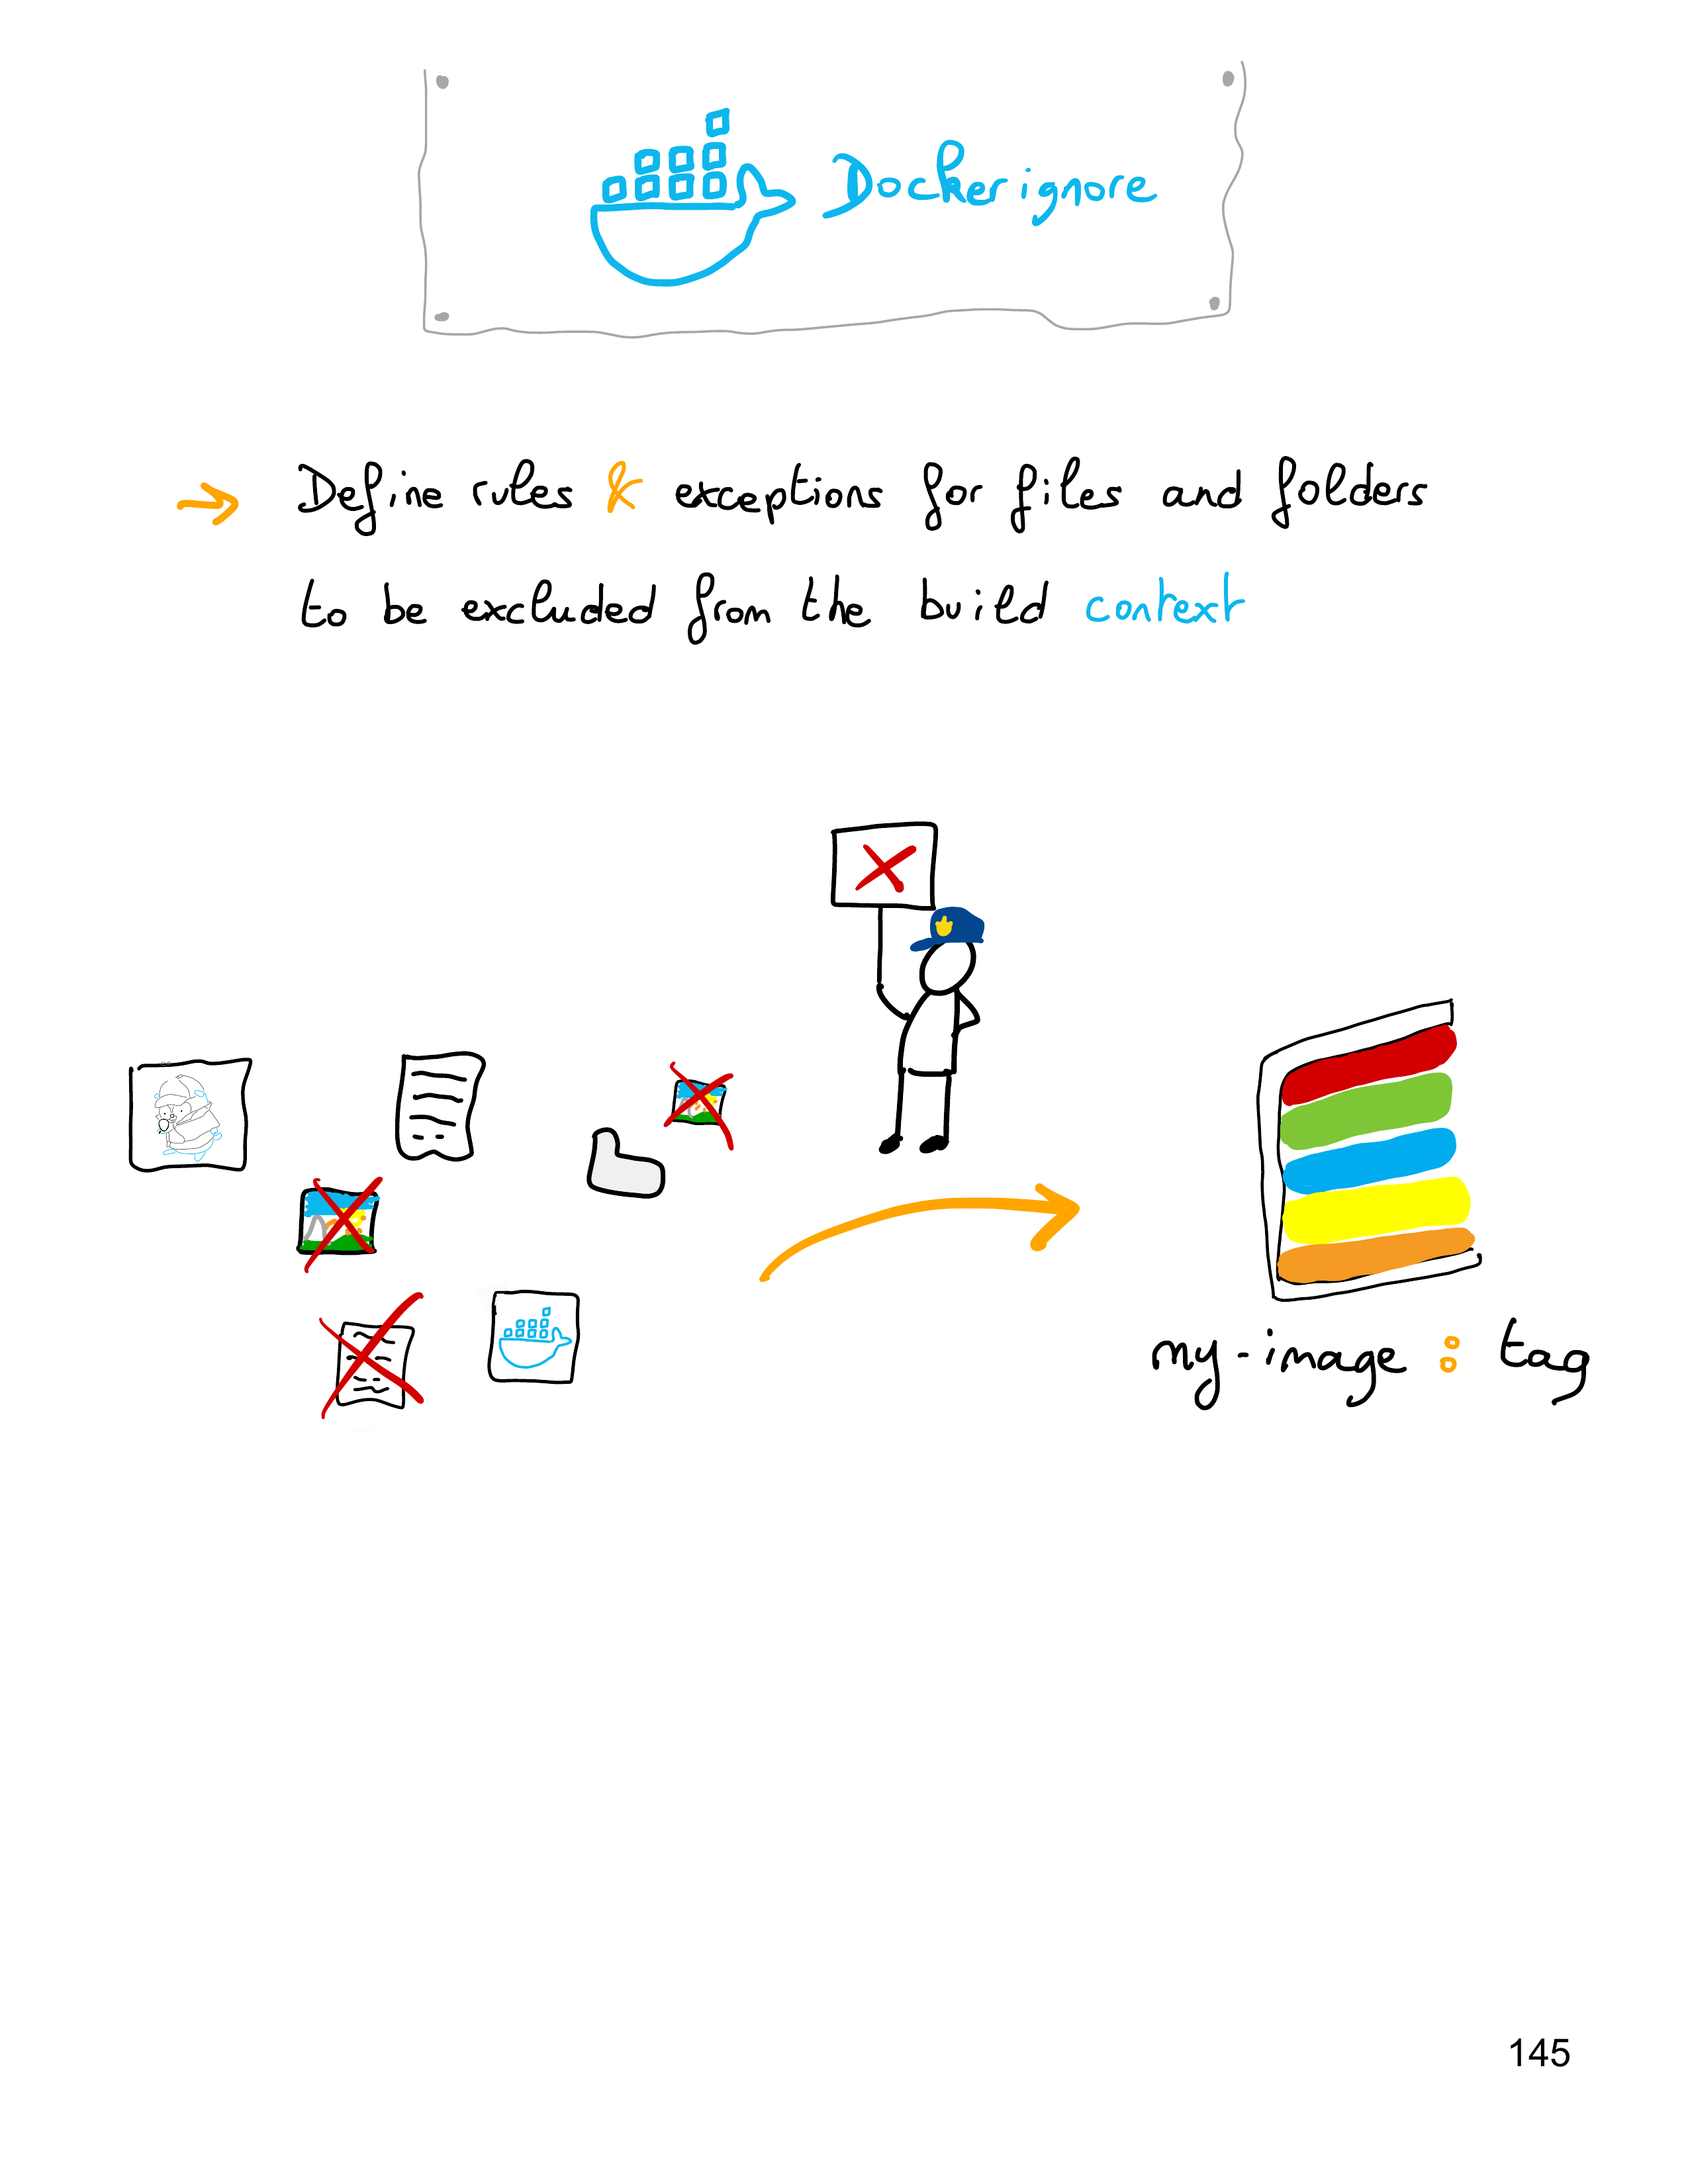 Dockerignore
→ Define rules & exceptions for files and folders
to be excluded from the build context
my-image : tag
145